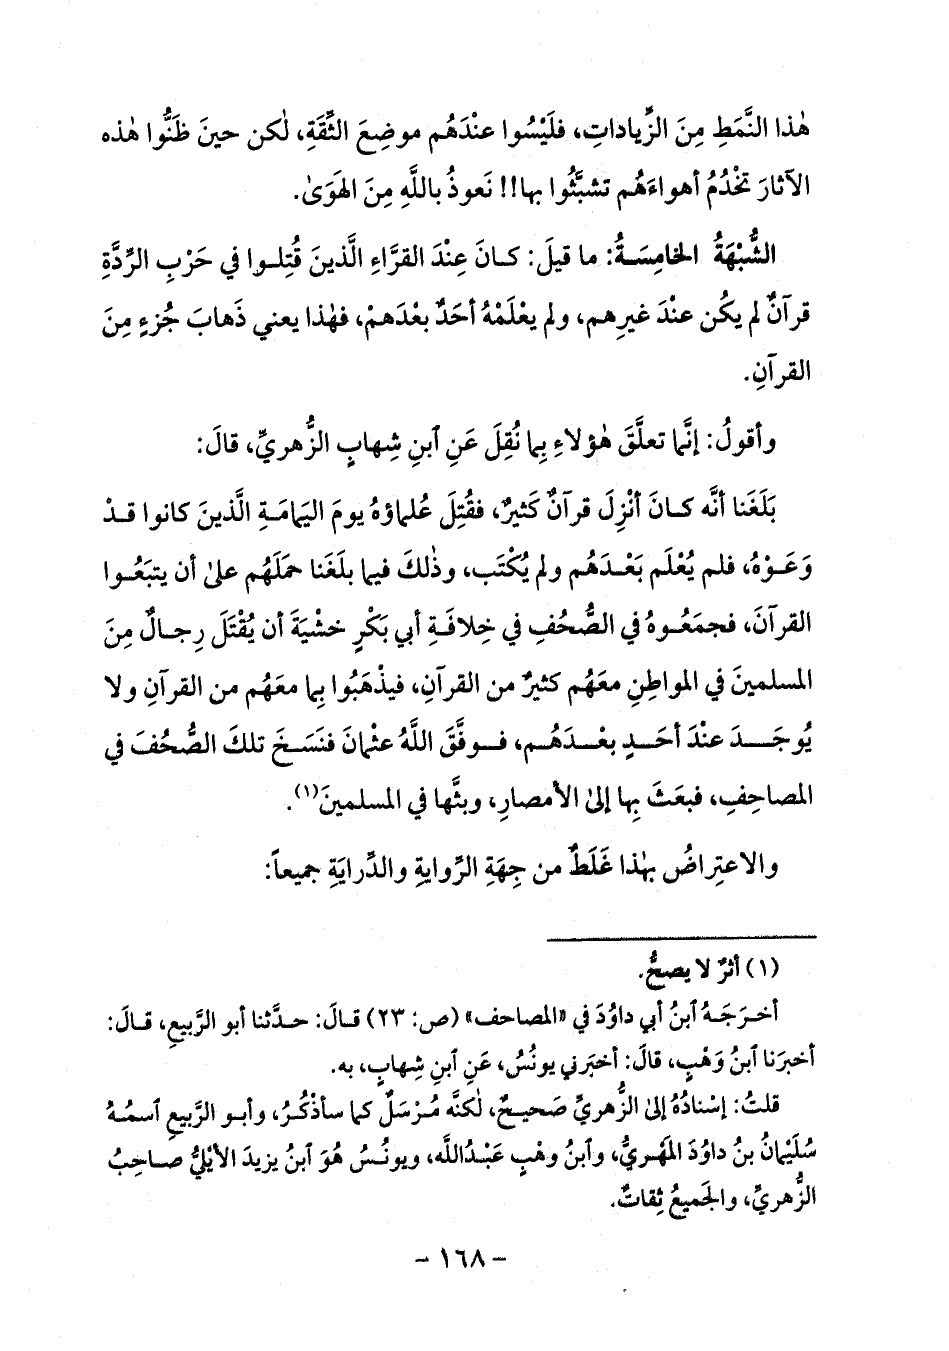 هٰذا النَّمَطِ مِنَ الزِّياداتِ، فلَيْسُوا عندَهُم موضِعَ الثِّقَةِ، لٰكن حينَ ظَنُّوا هٰذه
الآثارَ تَخْدُمُ أهواءَهُم تشبَّثُوا بها!! نَعوذُ باللَّهِ مِنَ الهَوَىٰ.
الشُّبْهَةُ الخامِسَةُ: ما قيلَ: كانَ عِنْدَ القرَّاءِ الَّذينَ قُتِلوا في حَرْبِ الرِّدَّةِ
قرآنٌ لم يكُن عندَ غيرِهم، ولم يعْلَمْهُ أحَدٌ بعْدَهمْ، فهٰذا يعني ذَهابَ جُزءٍ مِنَ
القرآنِ.
وأقولُ: إنَّما تعلَّقَ هٰؤلاءِ بِما نُقِلَ عَنِ ٱبنِ شِهابٍ الزُّهريِّ، قالَ:
بَلَغَنا أنَّه كانَ أُنْزِلَ قرآنٌ كَثيرٌ، فقُتِلَ عُلماؤهُ يومَ اليَمامَةِ الَّذينَ كانوا قدْ
وَعَوْهُ، فلم يُعْلَم بَعْدَهُم ولم يُكْتَب، وذٰلكَ فيما بلَغَنا حمَلَهُم علىٰ أن يتبَعُوا
القرآنَ، فجمَعُوهُ في الصُّحُفِ في خِلافَةِ أبي بَكْرٍ خشْيَةَ أن يُقْتَلَ رِجالٌ مِنَ
المسلمينَ في المواطِنِ معَهُم كثيرٌ من القرآنِ، فيذْهَبُوا بِما معَهُم من القرآنِ ولا
يُوجَدَ عندَ أحَدٍ بعْدَهُم، فوفَّقَ اللَّهُ عثْمانَ فنَسَخَ تلكَ الصُّحُفَ في
المصاحِفِ، فبعَثَ بِها إلىٰ الأمصارِ، وبثَّها في المسلمينَ(١).
والاعتِراضُ بهٰذا غَلَطٌ من جِهَةِ الرِّوايةِ والدِّرايَةِ جميعاً:
(١) أثرٌ لا يصحُّ.
أخرَجَهُ ٱبنُ أبي داوُدَ في «المصاحف» (ص: ٢٣) قالَ: حدَّثنا أبو الرَّبيعِ، قالَ:
أخبرَنا ٱبنُ وَهْبٍ، قالَ: أخبَرني يونُسُ، عَنِ ٱبنِ شِهابٍ، به.
قلتُ: إسْنادُهُ إلىٰ الزُّهريِّ صَحيحٌ، لٰكنَّه مُرْسَلٌ كما سأذْكُرُ، وأبو الرَّبيعِ ٱسمُهُ
سُلَيْمانُ بنُ داوُدَ المَهْريُّ، وٱبنُ وهْبٍ عَبْدُاللَّه، ويونُسُ هُوَ ٱبنُ يزيدَ الأيْليُّ صاحِبُ
الزُّهريِّ، والجَميعُ ثِقاتٌ.
- ١٦٨ -